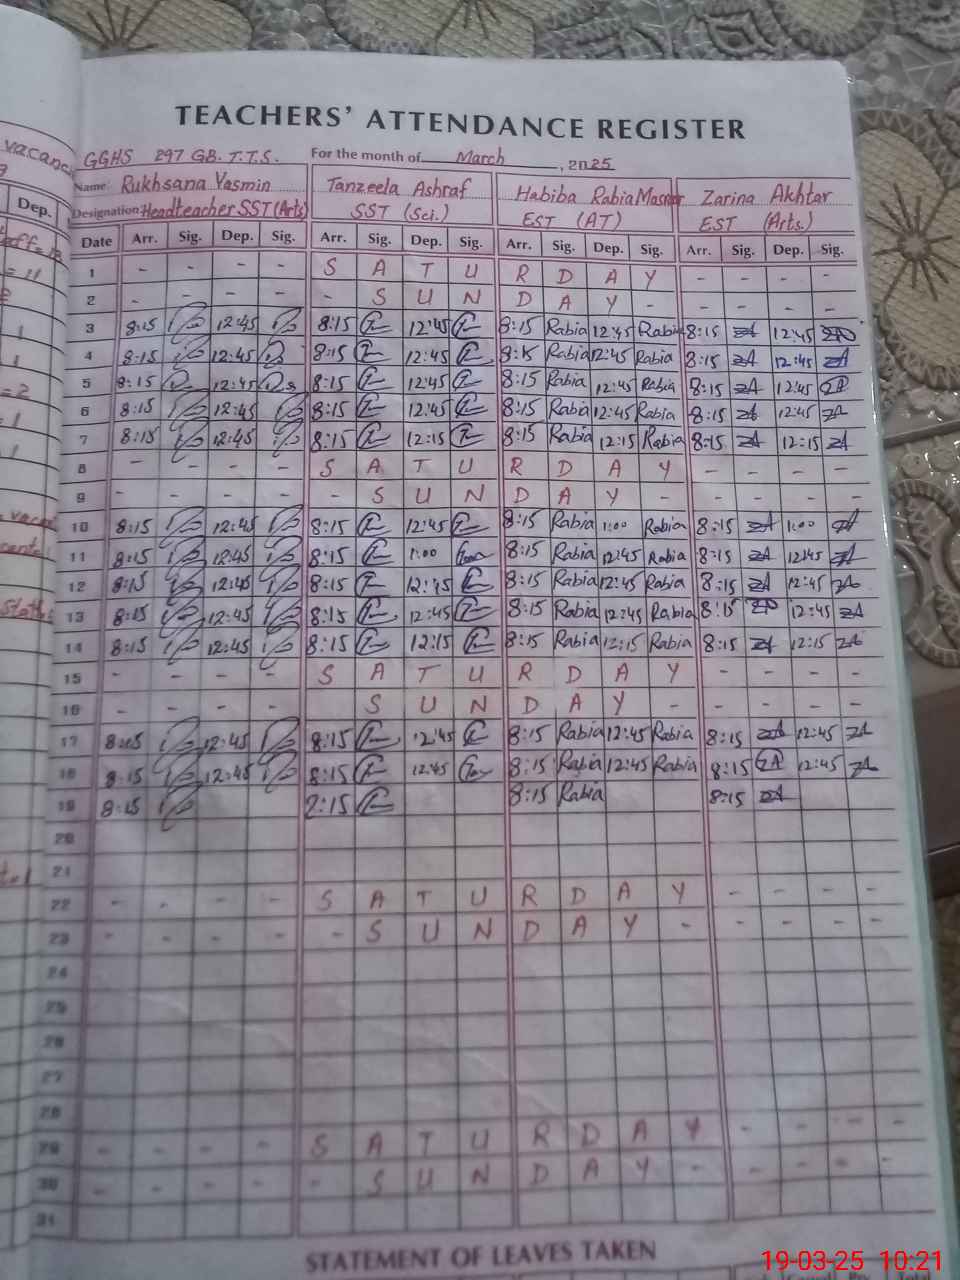 TEACHERS' ATTENDANCE REGISTER
GGHS 297 GB. T.T.S. For the month of March, 2025
Name: Rukhsana Yasmin Tanzeela Ashraf Habiba Rabia Zarina Akhtar
Designation Headteacher SST (Arts) SST (Sci.) EST (AT) EST (Arts.)
Dep. Date Arr. Sig. Dep. Sig. Arr. Sig. Dep. Sig. Arr. Sig. Dep. Sig. Arr. Sig. Dep. Sig.
1 - - - - S A T U R D A Y - - - -
2 - - - - - S U N D A Y - - - - -
3 8:15 12:45 8:15 12:45 8:15 Rabia 12:45 Rabia 8:15 ZA 12:45 ZA
4 8:15 12:45 8:15 12:45 8:15 Rabia 12:45 Rabia 8:15 ZA 12:45 ZA
5 8:15 12:45 8:15 12:45 8:15 Rabia 12:45 Rabia 8:15 ZA 12:45 ZA
6 8:15 12:45 8:15 12:45 8:15 Rabia 12:45 Rabia 8:15 ZA 12:45 ZA
7 8:15 12:45 8:15 12:15 8:15 Rabia 12:15 Rabia 8:15 ZA 12:15 ZA
8 - - - - S A T U R D A Y - - - -
9 - - - - - S U N D A Y - - - - -
10 8:15 12:45 8:15 12:45 8:15 Rabia 1:00 Rabia 8:15 ZA 1:00 ZA
11 8:15 12:45 8:15 1:00 8:15 Rabia 12:45 Rabia 8:15 ZA 12:45 ZA
12 8:15 12:45 8:15 12:45 8:15 Rabia 12:45 Rabia 8:15 ZA 12:45 ZA
13 8:15 12:45 8:15 12:45 8:15 Rabia 12:45 Rabia 8:15 ZA 12:45 ZA
14 8:15 12:45 8:15 12:15 8:15 Rabia 12:15 Rabia 8:15 ZA 12:15 ZA
15 - - - - S A T U R D A Y - - - -
16 - - - - - S U N D A Y - - - - -
17 8:15 12:45 8:15 12:45 8:15 Rabia 12:45 Rabia 8:15 ZA 12:45 ZA
18 8:15 12:45 8:15 12:45 8:15 Rabia 12:45 Rabia 8:15 ZA 12:45 ZA
19 8:15 8:15 Rabia 8:15 ZA
20
21
22 - - - - S A T U R D A Y - - - -
23 - - - - - S U N D A Y - - - - -
24
25
26
27
28
29 - - - - S A T U R D A Y - - - -
30 - - - - - S U N D A Y - - - - -
31
STATEMENT OF LEAVES TAKEN
19-03-25 10:21